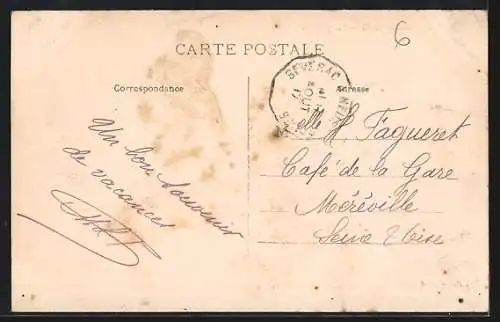 6
CARTE POSTALE
Correspondance
Adresse
SEVERAC
AOUT
Un bon souvenir
de vacances
Melle H. Fagueret
Café de la Gare
Méréville
Seine & Oise